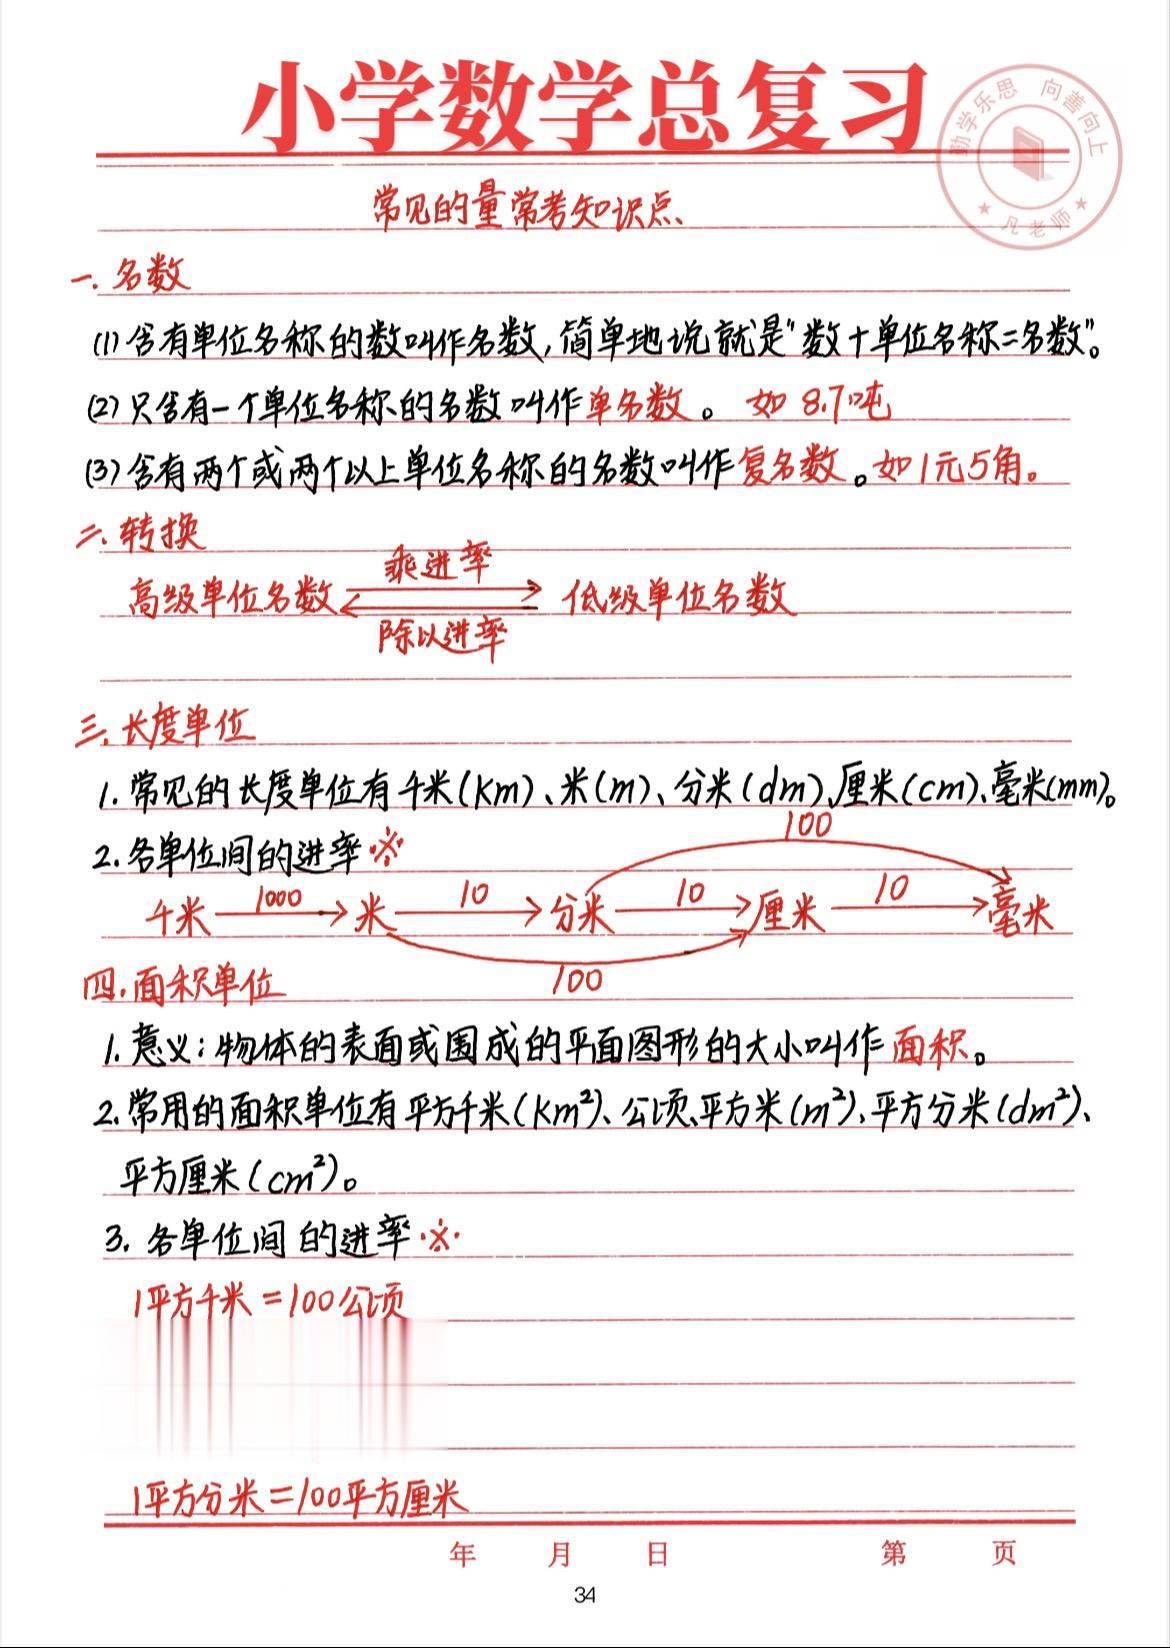 小学数学总复习
勤学乐思 向善向上
凡老师
常见的量常考知识点
一.名数
(1)含有单位名称的数叫作名数,简单地说就是"数+单位名称=名数"。
(2)只含有一个单位名称的名数叫作单名数。如 8.7吨
(3)含有两个或两个以上单位名称的名数叫作复名数。如1元5角。
二.转换
乘进率
高级单位名数 低级单位名数
除以进率
三.长度单位
1.常见的长度单位有千米(km)、米(m)、分米(dm)、厘米(cm)、毫米(mm)。
2.各单位间的进率※
100
千米 1000 米 10 分米 10 厘米 10 毫米
100
四.面积单位
1.意义:物体的表面或围成的平面图形的大小叫作面积。
2.常用的面积单位有平方千米(km²)、公顷、平方米(m²)、平方分米(dm²)、
平方厘米(cm²)。
3.各单位间的进率※
1平方千米=100公顷
1平方分米=100平方厘米
年 月 日 第 页
34